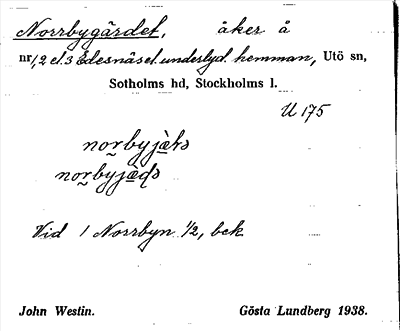 Norrbygärdet, åker å
nr 1, 2 el. 3 Edesnäs el. underlyd. hemman, Utö sn,
Sotholms hd, Stockholms l.
U 175
norbyjèts
norbyjèds
Vid 1 Norrbyn ½, bek
John Westin. Gösta Lundberg 1938.